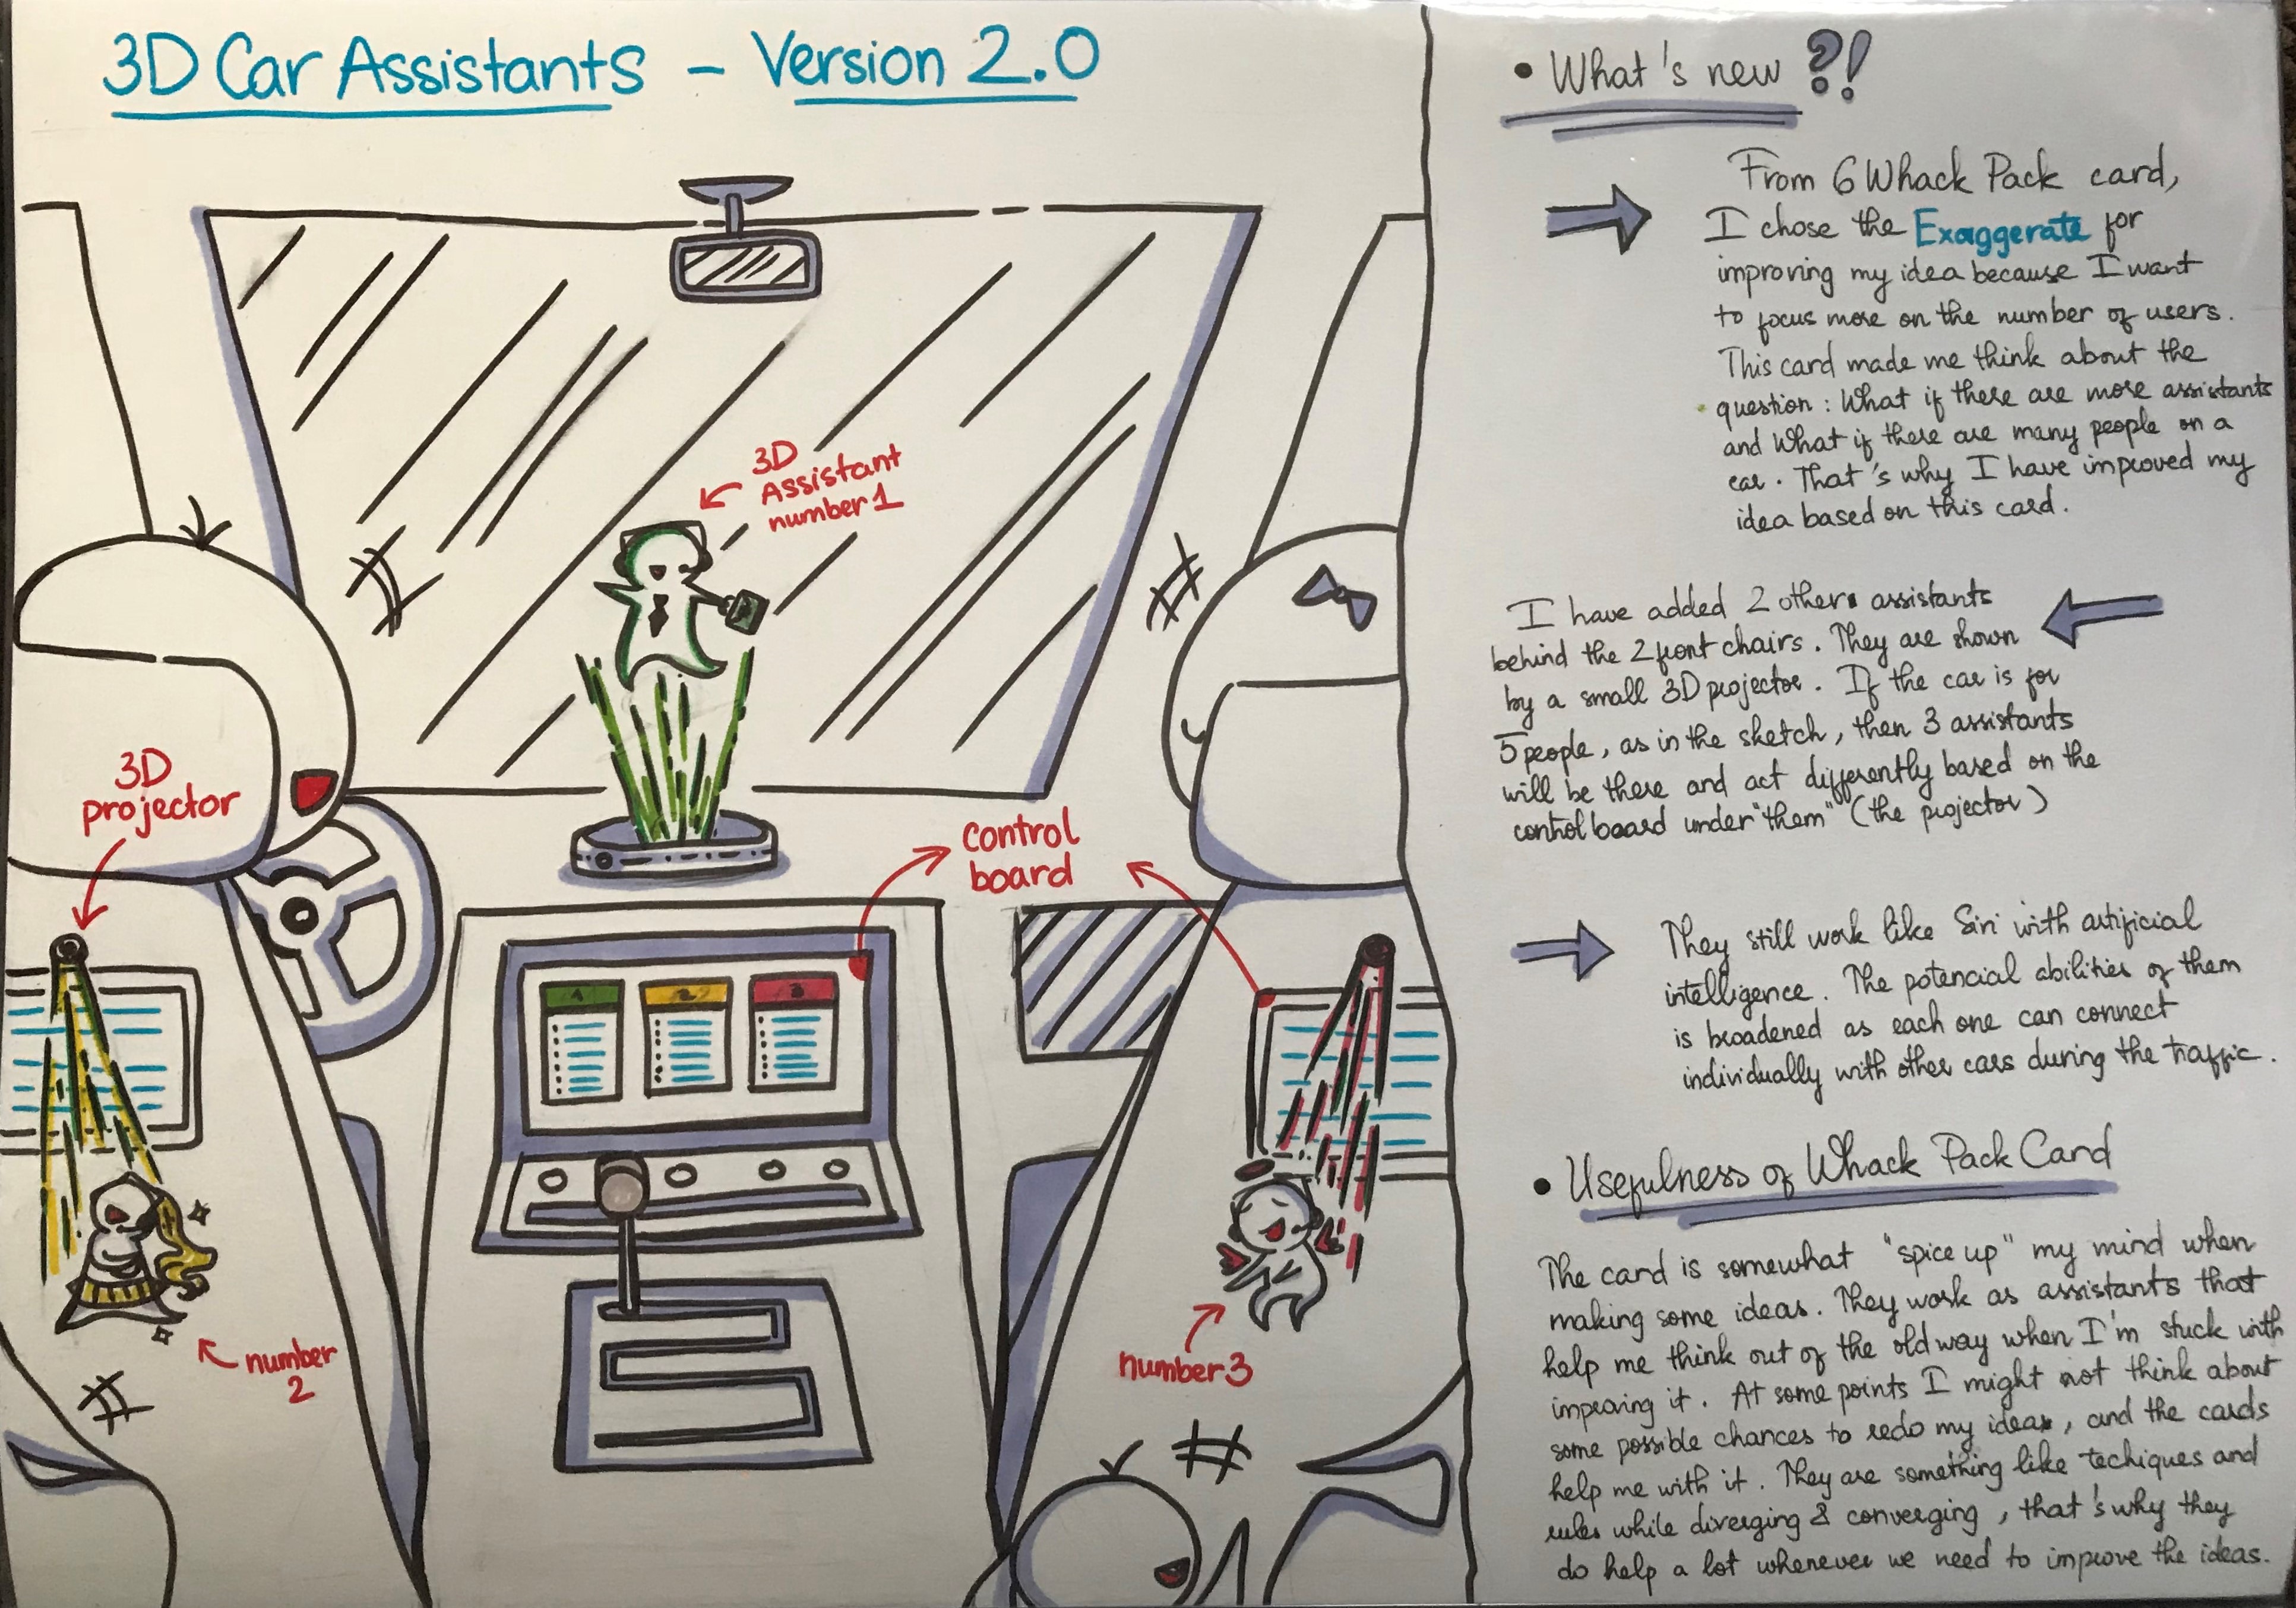 3D Car Assistants - Version 2.0
3D
Assistant
number 1
3D
projector
control
board
1
2
3
number
2
number 3
• What's new ?!
From 6 Whack Pack card,
I chose the Exaggerate for
improving my idea because I want
to focus more on the number of users.
This card made me think about the
question : What if there are more assistants
and What if there are many people on a
car. That's why I have improved my
idea based on this card.
I have added 2 other assistants
behind the 2 front chairs. They are shown
by a small 3D projector. If the car is for
5 people, as in the sketch, then 3 assistants
will be there and act differently based on the
control board under "them" (the projector)
They still work like Siri with artificial
intelligence. The potencial abilities of them
is broadened as each one can connect
individually with other cars during the traffic.
• Usefulness of Whack Pack Card
The card is somewhat "spice up" my mind when
making some ideas. They work as assistants that
help me think out of the old way when I'm stuck with
improving it. At some points I might not think about
some possible chances to redo my ideas, and the cards
help me with it. They are something like techiques and
rules while diverging & converging, that's why they
do help a lot whenever we need to improve the ideas.